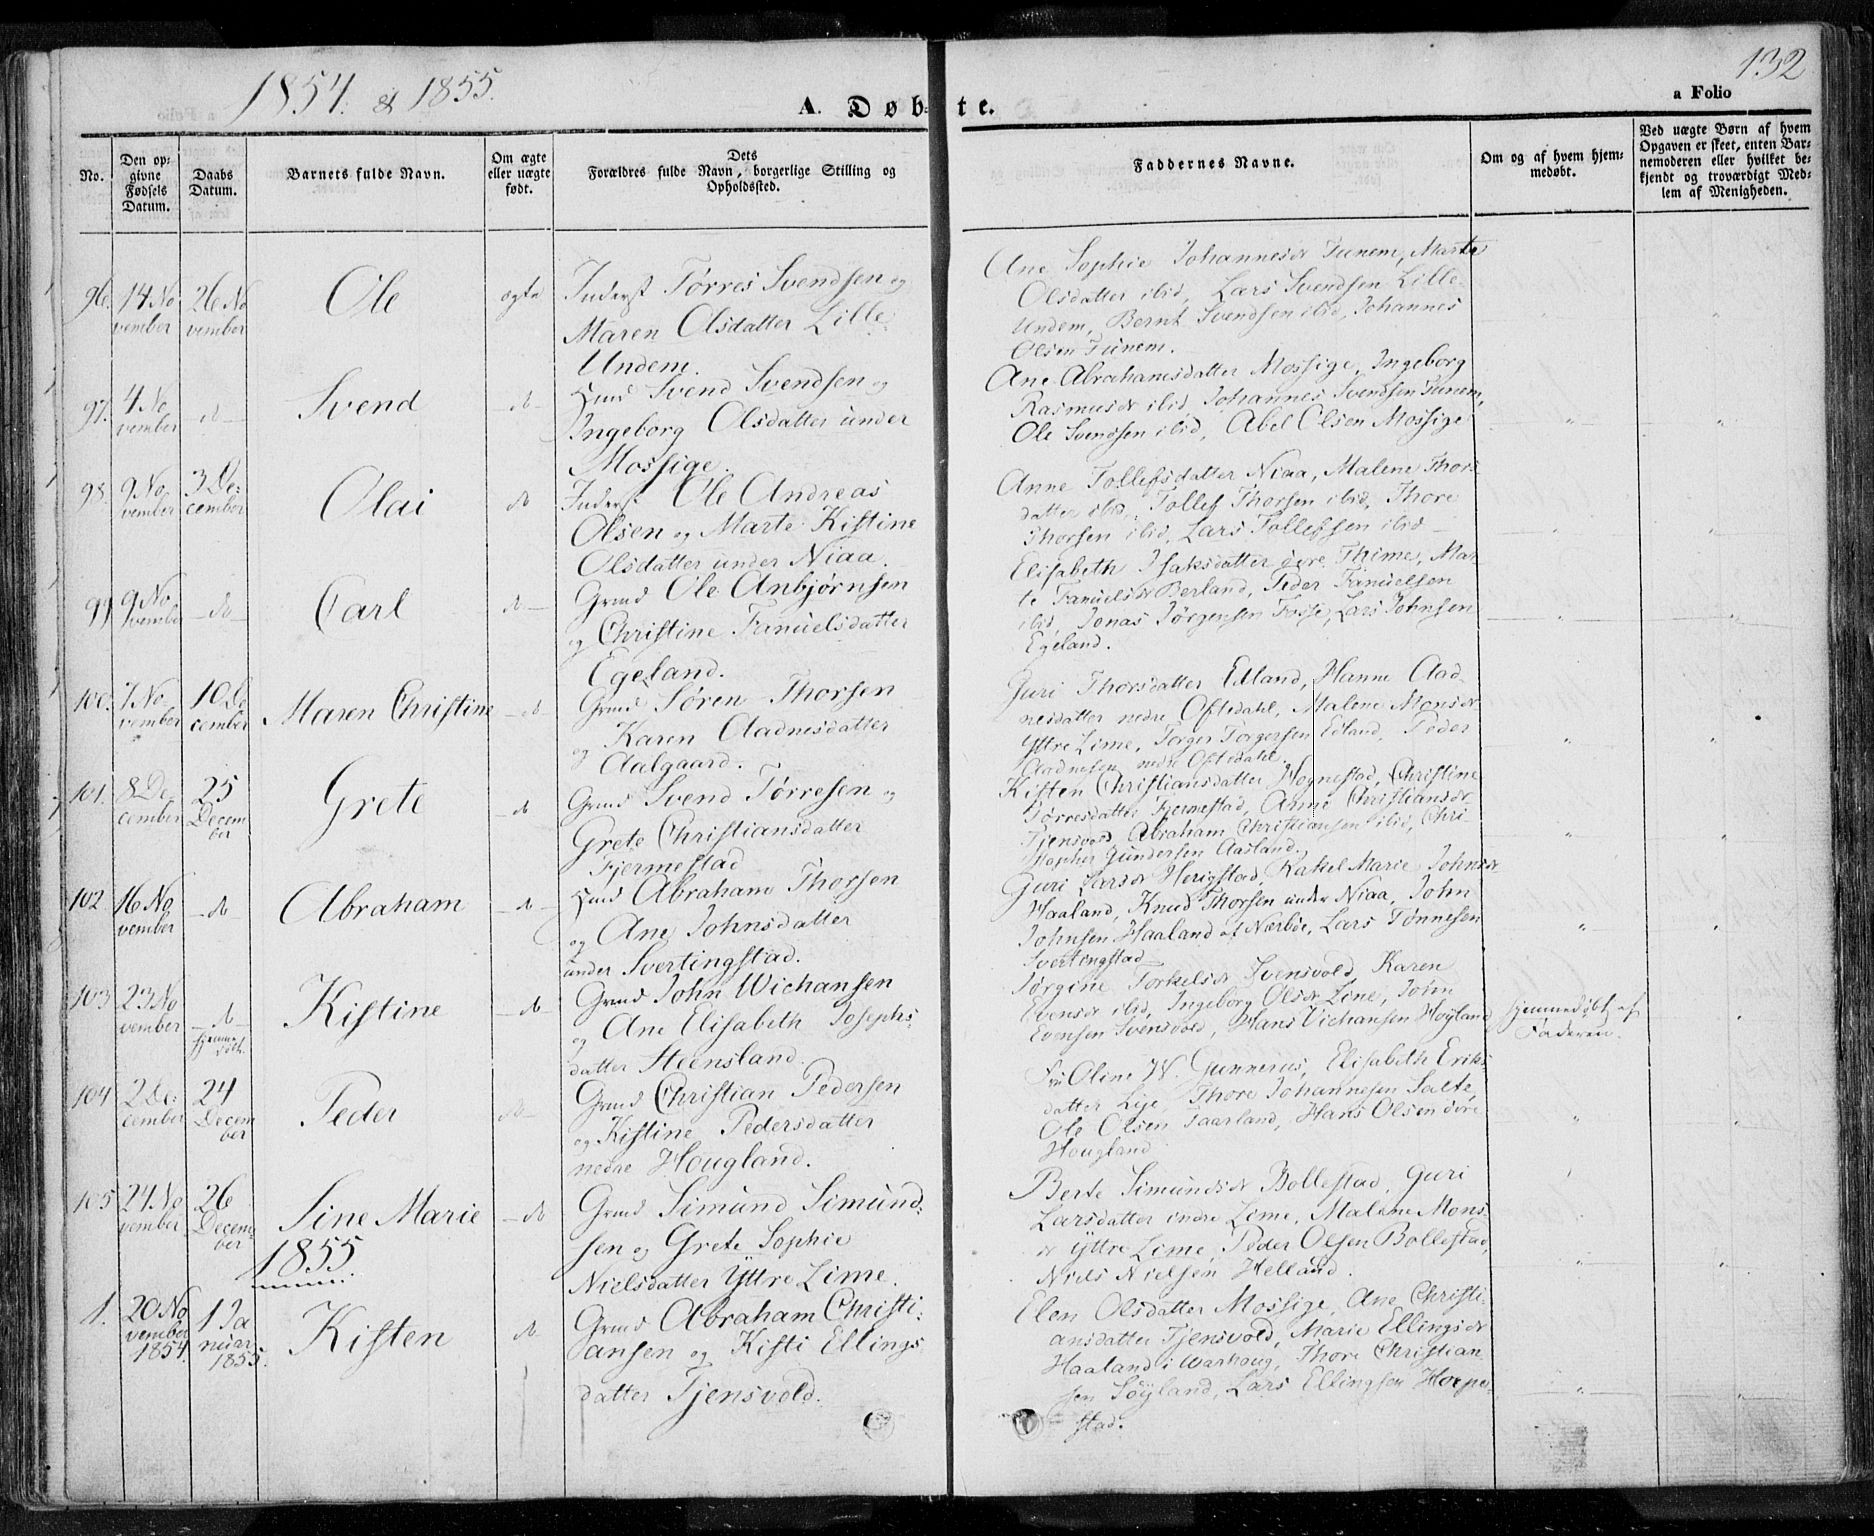 1854. & 1855.
132
A. Døb=
te.
a Folio
No.
Den op=
givne
Fødsels
Datum.
Daabs
Datum.
Barnets fulde Navn.
Om ægte
eller uægte
født.
Dets
Forældres fulde Navn, borgerlige Stilling og
Opholdssted.
Faddernes Navne.
Om og af hvem hjem=
medøbt.
Ved uægte Børn af hvem
Opgaven er skeet, enten Bar=
nemoderen eller hvilket be=
kjendt og troværdigt Med=
lem af Menigheden.
96. 14 No
vember
26 No
vember
Ole
ægte
Inderst Tørres Svendsen og
Maren Olsdatter Lille
Undem.
Ane Sophie Johannesdr Tunem, Marte
Olsdatter ibid, Lars Svendsen Lille
Undem, Bernt Svendsen ibid, Johannes
Olsen Tunem.
97. 4 No
vember
- d -
Svend
- d -
Huus Svend Svendsen og
Ingeborg Olsdatter under
Mossige.
Ane Abrahamsdatter Mossige, Ingeborg
Rasmusdr ibid, Johannes Svendsen Tunem,
Ole Svendsen ibid, Abel Olsen Mossige
98. 9 No
vember
3 De=
cember
Olai
do
Inderst Ole Andreas
Olsen og Marte Kistine
Olsdatter under Niaa.
Anne Tollefsdatter Niaa, Malene Thors
datter ibid, Tollef Thorsen ibid, Thore
Thorsen ibid, Lars Tollefsen ibid
99 9 No
vember
- do -
Carl
do -
Grmd Ole Anbjørnsen
og Christine Fanuelsdatter
Egeland.
Elisabeth Isaksdatter øvre Thime, Mar
te Fanuelsdr Berland, Peder Fanuelsen
ibid, Jonas Jørgensen Fosse, Lars Johnsen
Egeland.
100. 7 No
vember
10 De
cember
Maren Christine
- do
Grmd Søren Thorsen
og Karen Aadnesdatter
Aalgaard.
Guri Thorsdatter Edland, Hanne Aad
nesdatter nedre Oftedahl, Malene Monsdr
Yttre Lime, Torger Torgersen Edland, Peder
Aadnesen nedre Oftedahl.
101. 8 De
cember
25
Decem
ber
Grete
- do
Grmd Svend Tørresen og
Grete Christiansdatter
Fjermestad
Kisten Christiansdatter Hognestad, Christine
Tørresdatter Fjermestad, Anne Christiansdr
Tjensvold, Abraham Christiansen ibid, Chri
stopher Gundersen Aasland.
102 16 No
vember
- do -
Abraham
- do -
Huus Abraham Thorsen
og Ane Johnsdatter
under Svertingstad.
Guri Larsdr Herigstad, Rakel Marie Johnsdr
Haaland, Knud Thorsen under Niaa, John
Johnsen Haaland af Nærbøe, Lars Tønnesen
Svertingstad
103 23 No
vember
- do -
hjemme
døbt.
Kistine
- do
Grmd John Wichansen
og Ane Elisabeth Josephs=
datter Steensland.
Jørgine Torkelsdr Svensvold, Karen
Evensdr ibid, Ingeborg Olsdr Line, John
Evensen Svensvold, Hans Vichansen Høyland
hjemmedøbt af
Faderen.
104 2 De=
cember
24
Decem
ber
Peder
do -
Grmd Christian Pedersen
og Kistine Pedersdatter
nedre Hougland.
Fru Oline W. Gunnerus, Elisabeth Eriks
datter Lye, Thore Johannesen Salte,
Ole Olsen Taarland, Hans Olsen øvre
Hougland
105 24 No
vember
26
Decem
ber
Sine Marie
- do
Grmd Simund Simund=
sen og Grete Sophie
Nielsdatter Yttre Lime.
Berte Simundsdr Bollestad, Guri
Larsdatter indre Lime, Malene Mons
dr Yttre Lime, Peder Olsen Bollestad,
Niels Nielsen Helland.
1855
1. 20 No
vember
1854.
1 Ja
nuar
1855.
Kisten
do
Grmd Abraham Christi=
ansen og Kisti Ellings
datter Tjensvold.
Elen Olsdatter Mossige, Ane Christi
ansdatter Tjensvold, Marie Ellingsdr
Haaland i Warhoug, Thore Christian
sen Søyland, Lars Ellingsen Hoepe
stad.